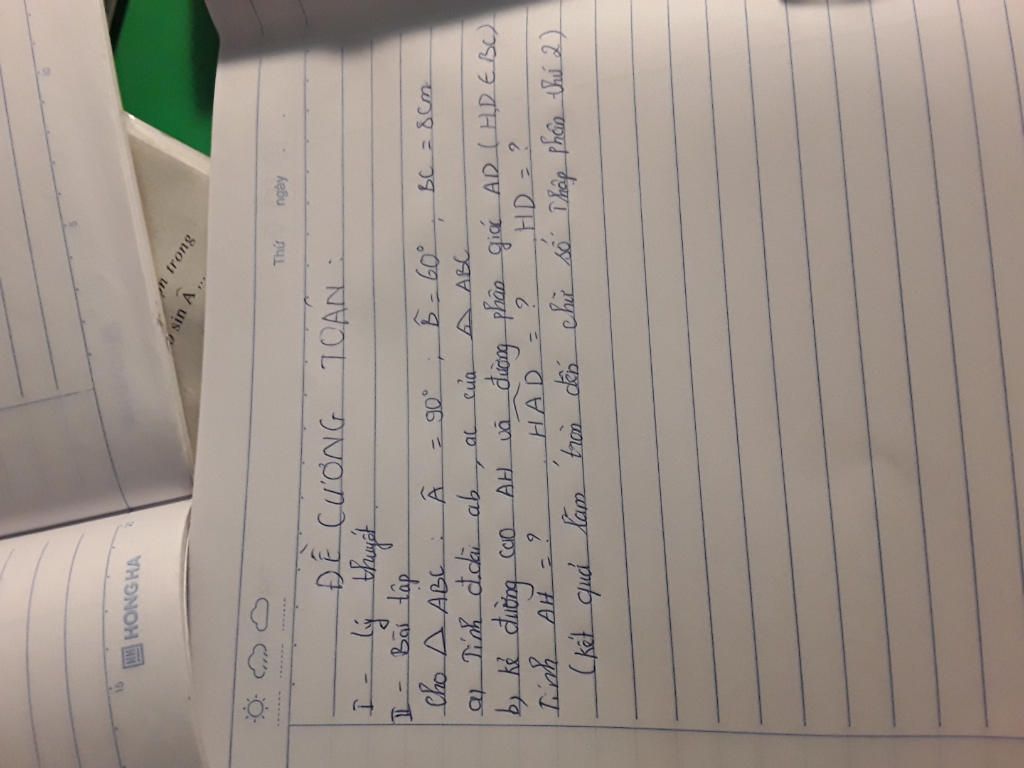 HONG HA
Thứ ngày
...n trong
sin Â ...
ĐỀ CƯƠNG TOÁN :
I - lý thuyết
II - Bài tập
Cho △ ABC : Â = 90° ; B̂ = 60° ; BC = 8cm
a) Tính đ.dài ab, ac của △ ABC
b) Kẻ đường cao AH và đường phân giá AD ( HD ∈ BC)
Tính AH = ? HAD = ? HD = ?
(kết quả làm tròn đến chữ số thập phân thứ 2)